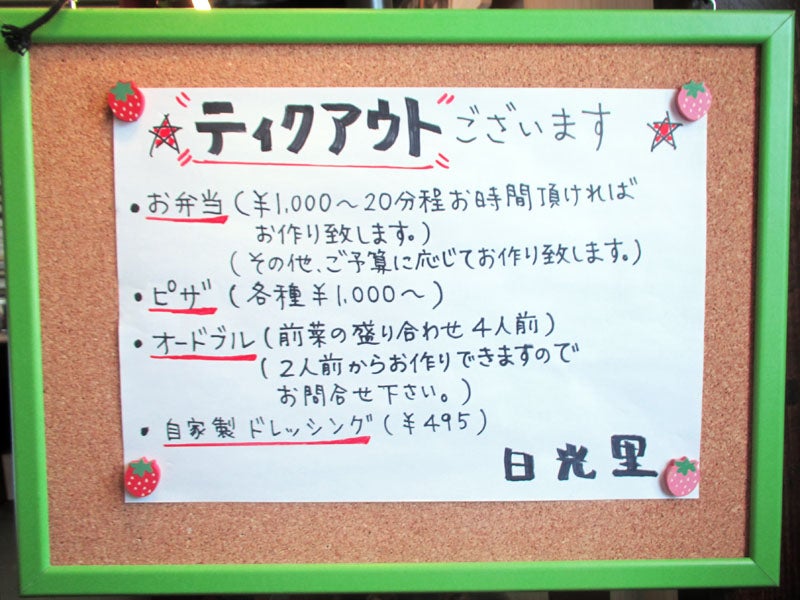 ティクアウトございます
• お弁当(¥1,000〜20分程お時間頂ければ
お作り致します。)
(その他、ご予算に応じてお作り致します。)
• ピザ(各種¥1,000〜)
• オードブル(前菜の盛り合わせ4人前)
(2人前からお作りできますので
お問合せ下さい。)
• 自家製ドレッシング(¥495)
日光里